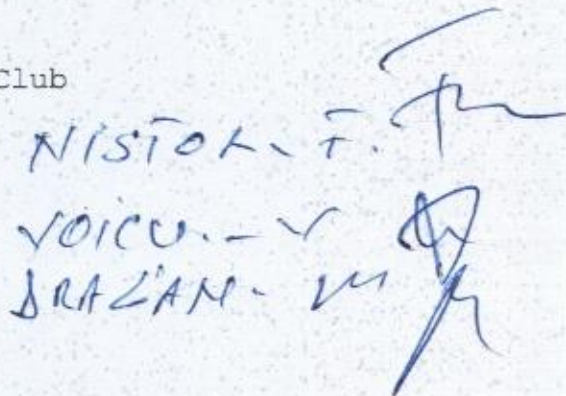 Club
NISTOR - F.
VOICU. - V
DRAGAN - M